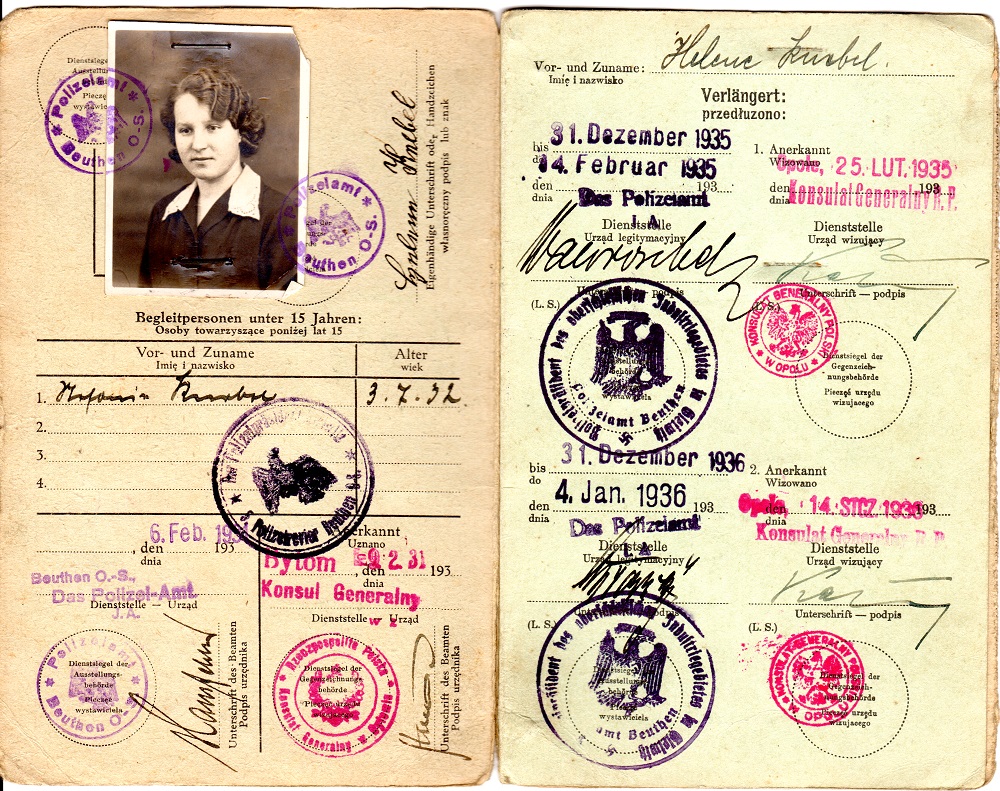 Dienstsiegel der
Ausstellungs-
Pieczęć
wystawiciela
* Polizeiamt *
Beuthen O-S.
* Polizeiamt *
Beuthen O-S.
Knebel
Eigenhändige Unterschrift oder Handzeichen
własnoręczny podpis lub znak
Begleitpersonen unter 15 Jahren:
Osoby towarzyszące poniżej lat 15
Vor- und Zuname
Imię i nazwisko
Alter
wiek
1. Knebel 3.7.32.
2.
3.
4.
Polizeirevier Beuthen O.S.
6. Feb.
, den 193
Beuthen O.-S.,
Das Polizei-Amt.
J.A.
Dienststelle – Urząd
Anerkannt
Uznano
Bytom 9. 2. 31
, den 193
dnia
Konsul Generalny
w z
Dienststelle – Urząd
* Polizeiamt *
Beuthen O-S.
Dienstsiegel der
Ausstellungs-
behörde
Pieczęć
wystawiciela
Unterschrift des Beamten
Podpis urzędnika
Rzeczpospolita Polska
Konsulat Generalny w Bytomiu
Dienstsiegel der
Gegenzeichnungs-
behörde
Pieczęć urzędu
wizującego
Unterschrift des Beamten
Podpis urzędnika
Vor- und Zuname: Helene Knebel.
Imię i nazwisko
Verlängert:
przedłużono:
bis 31. Dezember 1935
do
14. Februar 1935
den 193
dnia
Das Polizeiamt
J. A.
Dienststelle
Urząd legitymacyjny
podpis
(L. S.)
Polizeipräsident des oberschlesischen Industriegebietes in Gleiwitz
Polizeiamt Beuthen
1. Anerkannt
Wizowano
Opole, 25. LUT. 1935
den 193
dnia
Konsulat Generalny R. P.
Dienststelle
Urząd wizujący
Unterschrift – podpis
(L. S.)
KONSULAT GENERALNY POLSKI
* W OPOLU *
Dienstsiegel der
Gegenzeich-
nungsbehörde
Pieczęć urzędu
wizujacego
bis 31. Dezember 1936
do
4. Jan. 1936
den 193
dnia
Das Polizeiamt
J. A.
Dienststelle
Urząd legitymacyjny
podpis
(L. S.)
Polizeipräsident des oberschlesischen Industriegebietes in Gleiwitz
Polizeiamt Beuthen
wystawiciela
2. Anerkannt
Wizowano
Opole, 14. STCZ. 1936
den 193
dnia
Konsulat Generalny R. P.
Dienststelle
Urząd wizujący
Unterschrift – podpis
(L. S.)
KONSULAT GENERALNY POLSKI
* W OPOLU *
Dienstsiegel der
Gegenzeich-
nungsbehörde
Pieczęć urzędu
wizujacego